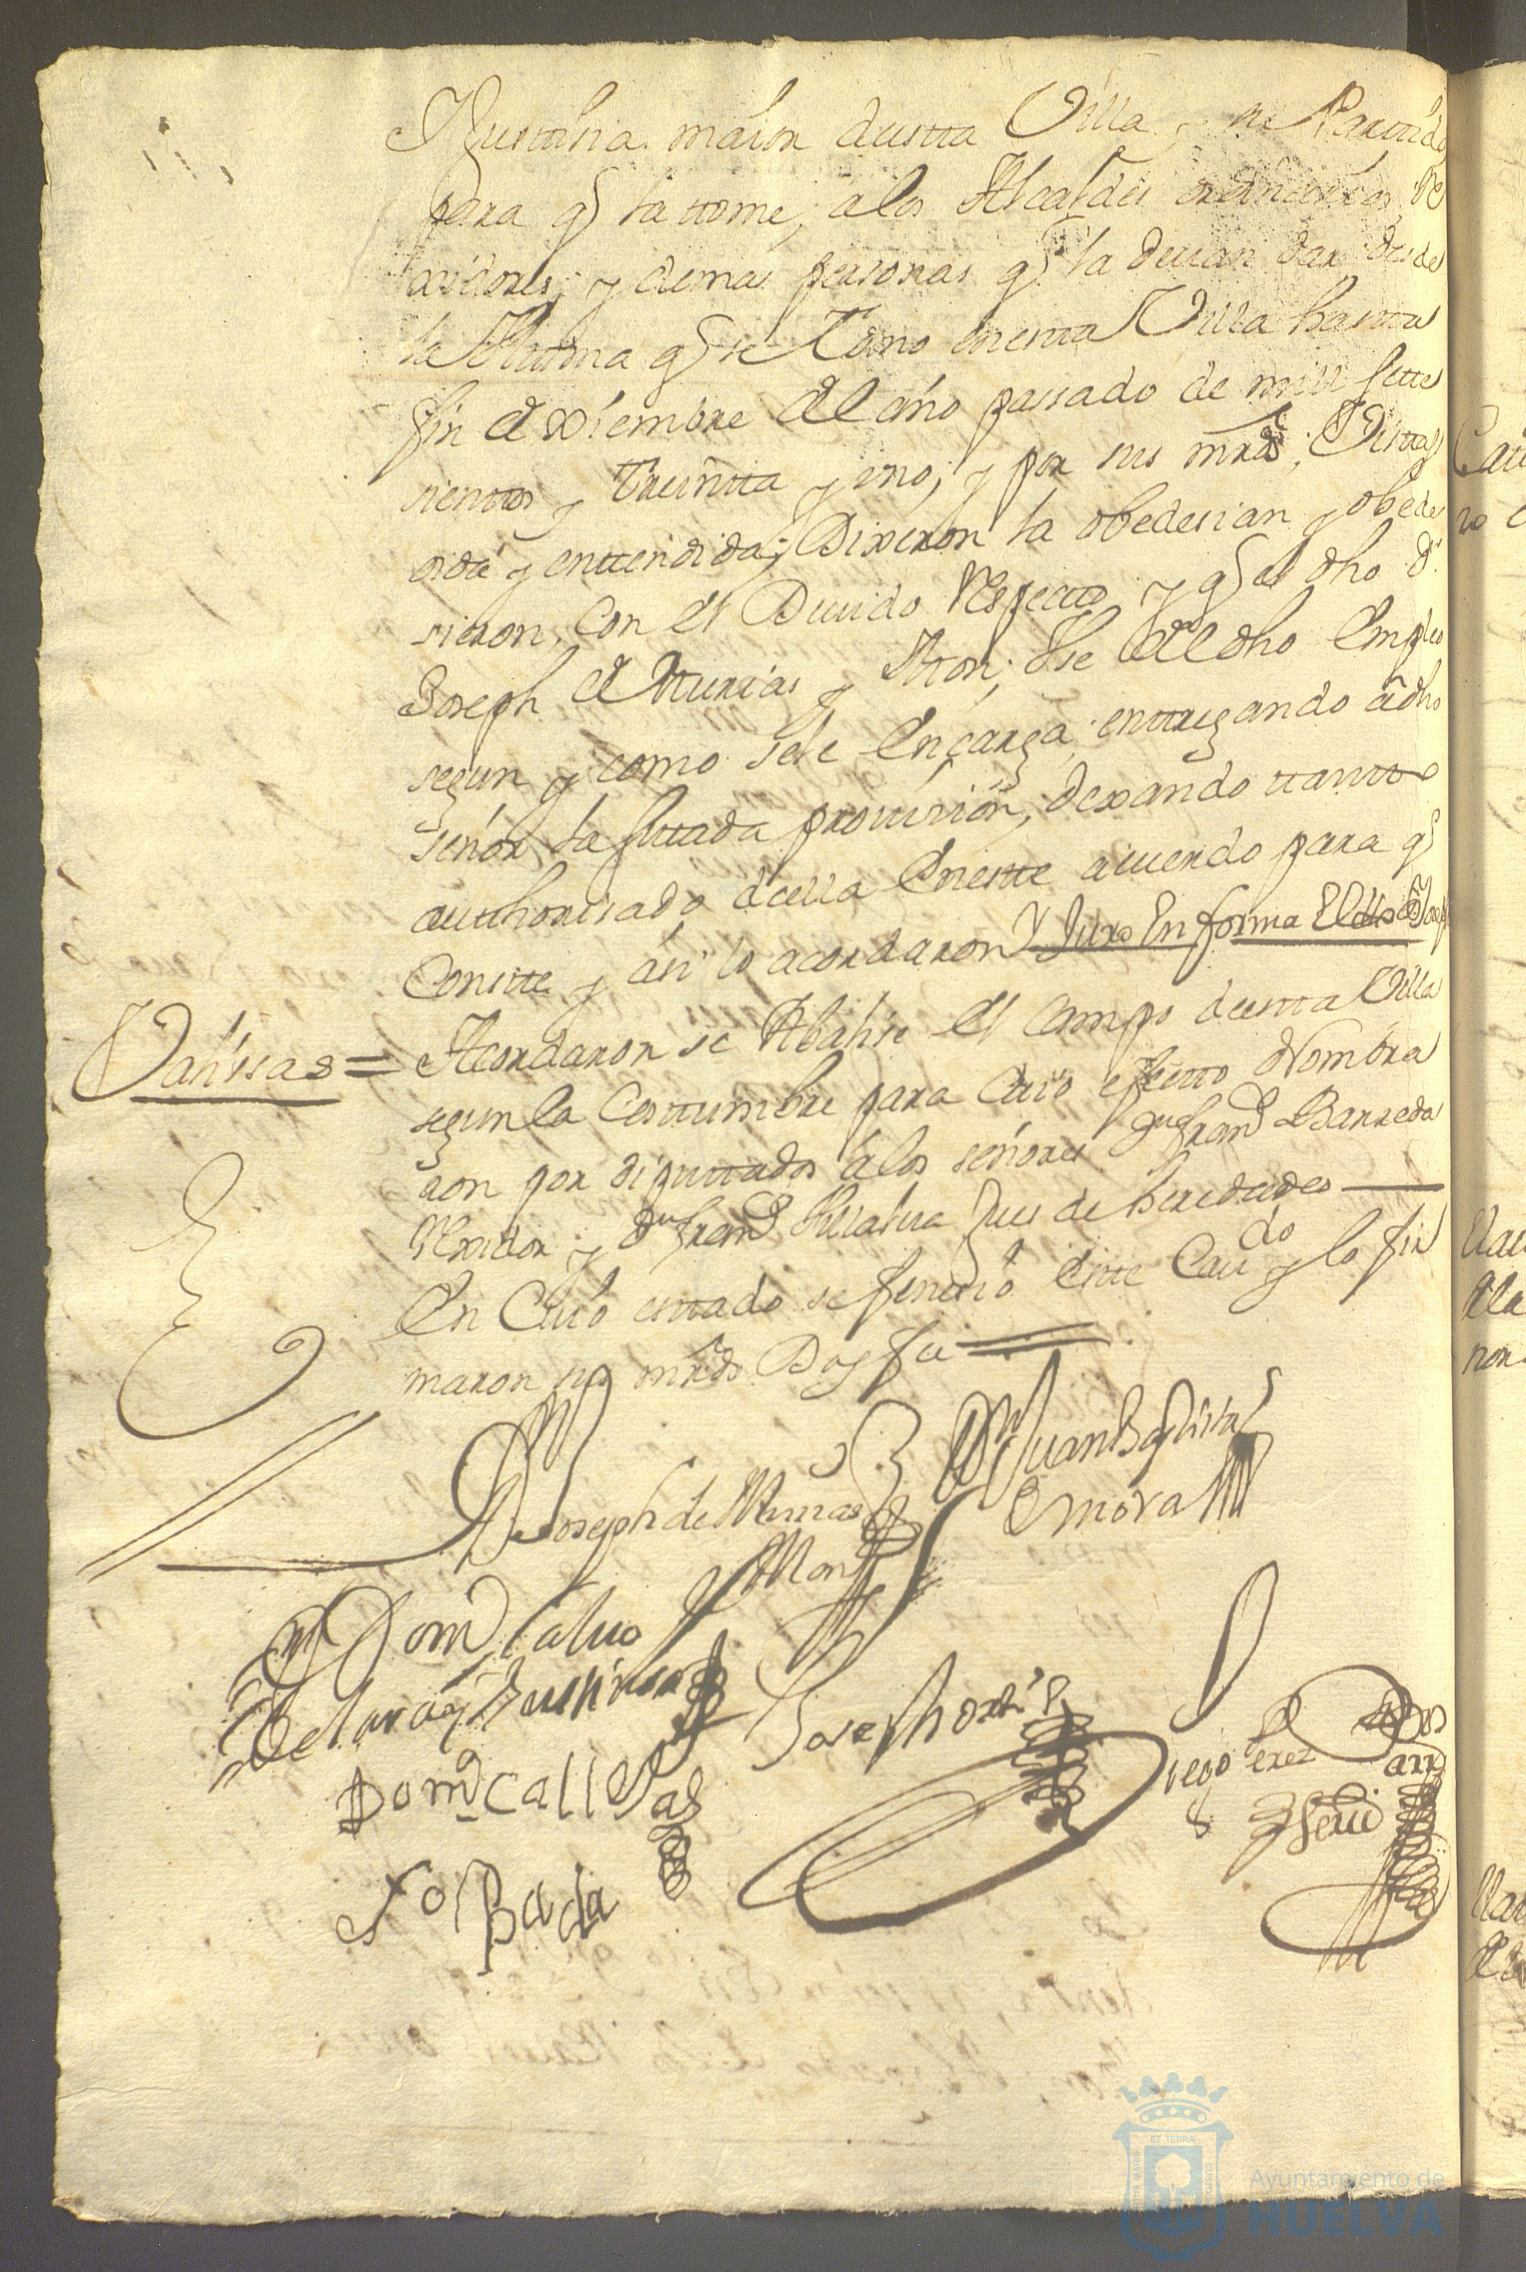 Justisia maior deestta Villa, y su Parttido
para q̃ la ttome, a los Alcaldes ordinarios, Re
xidores, y demas personas q̃ la devan dar desde
la ulttima q̃ se Tomo en esta Villa hastta
fin de Diziembre del año passado de mill sette
sienttos y Treintta y uno; y por sus mrds, Vistta
oida y enttendida; Dixeron la obedesian y obede
sieron, con el Devido Respecto, y q̃ el dho Dn
Joseph de y Mon; Use del dho Empleo
segun y como sele Encarga, enttregando a dho
señor la sittada provision, dexando ttantto
autthorisado de ella En este acuerdo para q̃
Constte y asi lo acordaron Y Juro En forma El dho Dn Joseph
Vatisas = Acordaron se Abatise el campo deestta Villa
segun la Costtumbre para Cuio efectto Nombra
ron por diputtados a los señores Dn Franco Barreda
Rexidor y Dn Franco Villalva Jues de heredades
En Cuio esttado se fenesio estte Cavdo y lo fir
maron sus mrds Doy fee
Dn Joseph de
y Mon
Dn Juan Baptista
Mora
Dn Domo Calvo
de Lara y
Joseph orttis
Domo Callejas
Diego Perez
Bada
Ayuntamiento de
HUELVA